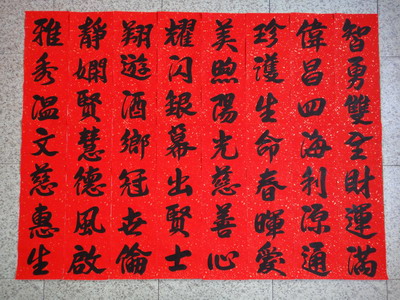 智勇雙全財運滿
偉昌四海利源通
珍護生命春暉愛
美煦陽光慈善心
耀閃銀幕出賢士
翔遊酒鄉冠世倫
靜嫻賢慧德風啟
雅秀溫文慈惠生